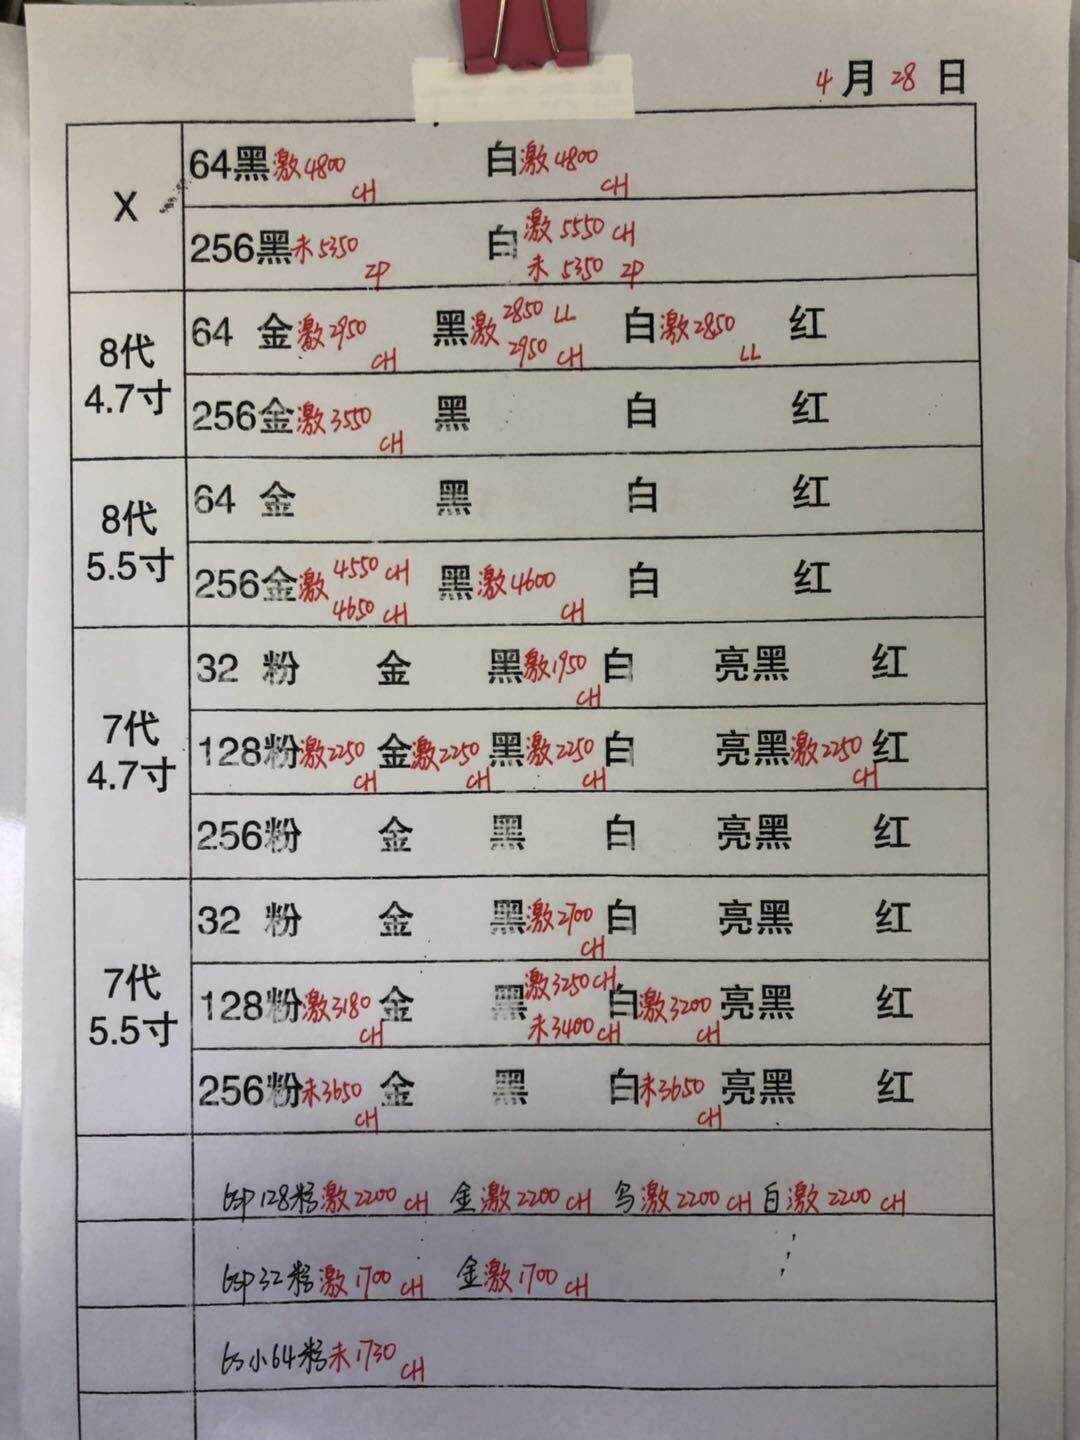 4月28日
X
64黑激4800CH 白激4800CH
256黑未5350ZP 白激5550CH
未5350ZP
8代
4.7寸
64 金激2950CH 黑激2850LL 白激2850LL 红
2950CH
256金激3550CH 黑 白 红
8代
5.5寸
64 金 黑 白 红
256金激4550CH 黑激4600CH 白 红
4650CH
7代
4.7寸
32 粉 金 黑激1950CH 白 亮黑 红
128粉激2250CH 金激2250CH 黑激2250CH 白 亮黑激2250CH 红
256粉 金 黑 白 亮黑 红
7代
5.5寸
32 粉 金 黑激2700CH 白 亮黑 红
128粉激3180CH 金 黑激3250CH 白激3200CH 亮黑 红
未3400CH
256粉未3650CH 金 黑 白未3650CH 亮黑 红
6sp128粉激2200CH 金激2200CH 激2200CH 白激2200CH
6sp32粉激1700CH 金激1700CH
6s小64粉未1730CH